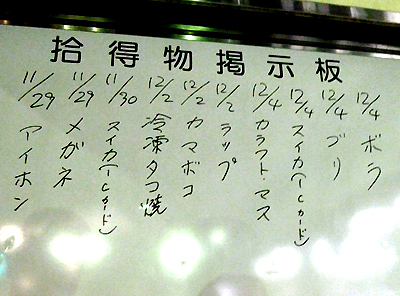 拾得物掲示板
11/29 アイホン
11/29 メガネ
11/30 スイカ(ICカード)
12/2 冷凍タコ焼
12/2 カマボコ
12/2 ラップ
12/4 カラフト・マス
12/4 スイカ(ICカード)
12/4 ブリ
12/4 ボラ